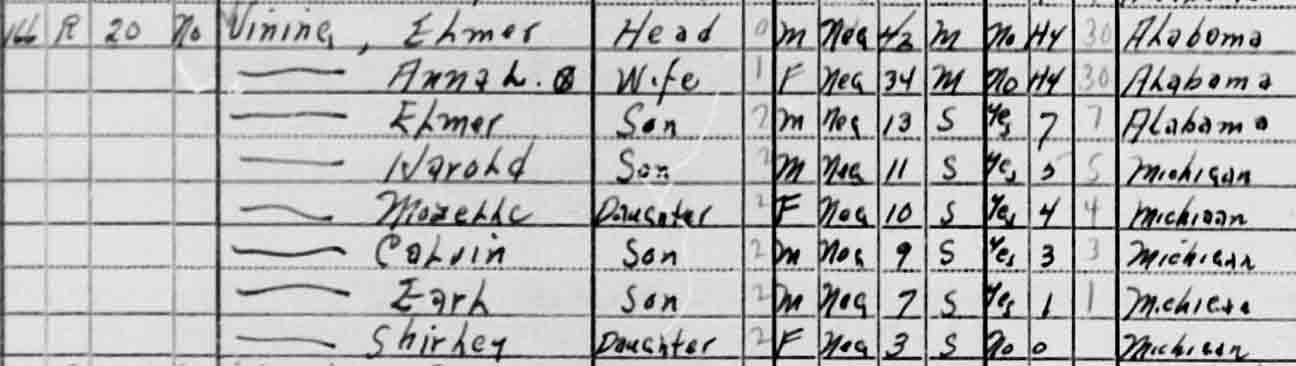 166 R 20 No Vining, Elmer Head 0 M Neg 42 M No H4 30 Alabama
— Anna L. Wife 1 F Neg 34 M No H4 30 Alabama
— Elmer Son 2 M Neg 13 S Yes 7 7 Alabama
— Harold Son 2 M Neg 11 S Yes 5 5 Michigan
— Mozelle Daughter 2 F Neg 10 S Yes 4 4 Michigan
— Calvin Son 2 M Neg 9 S Yes 3 3 Michigan
— Earl Son 2 M Neg 7 S Yes 1 1 Michigan
— Shirley Daughter 2 F Neg 3 S No 0 Michigan